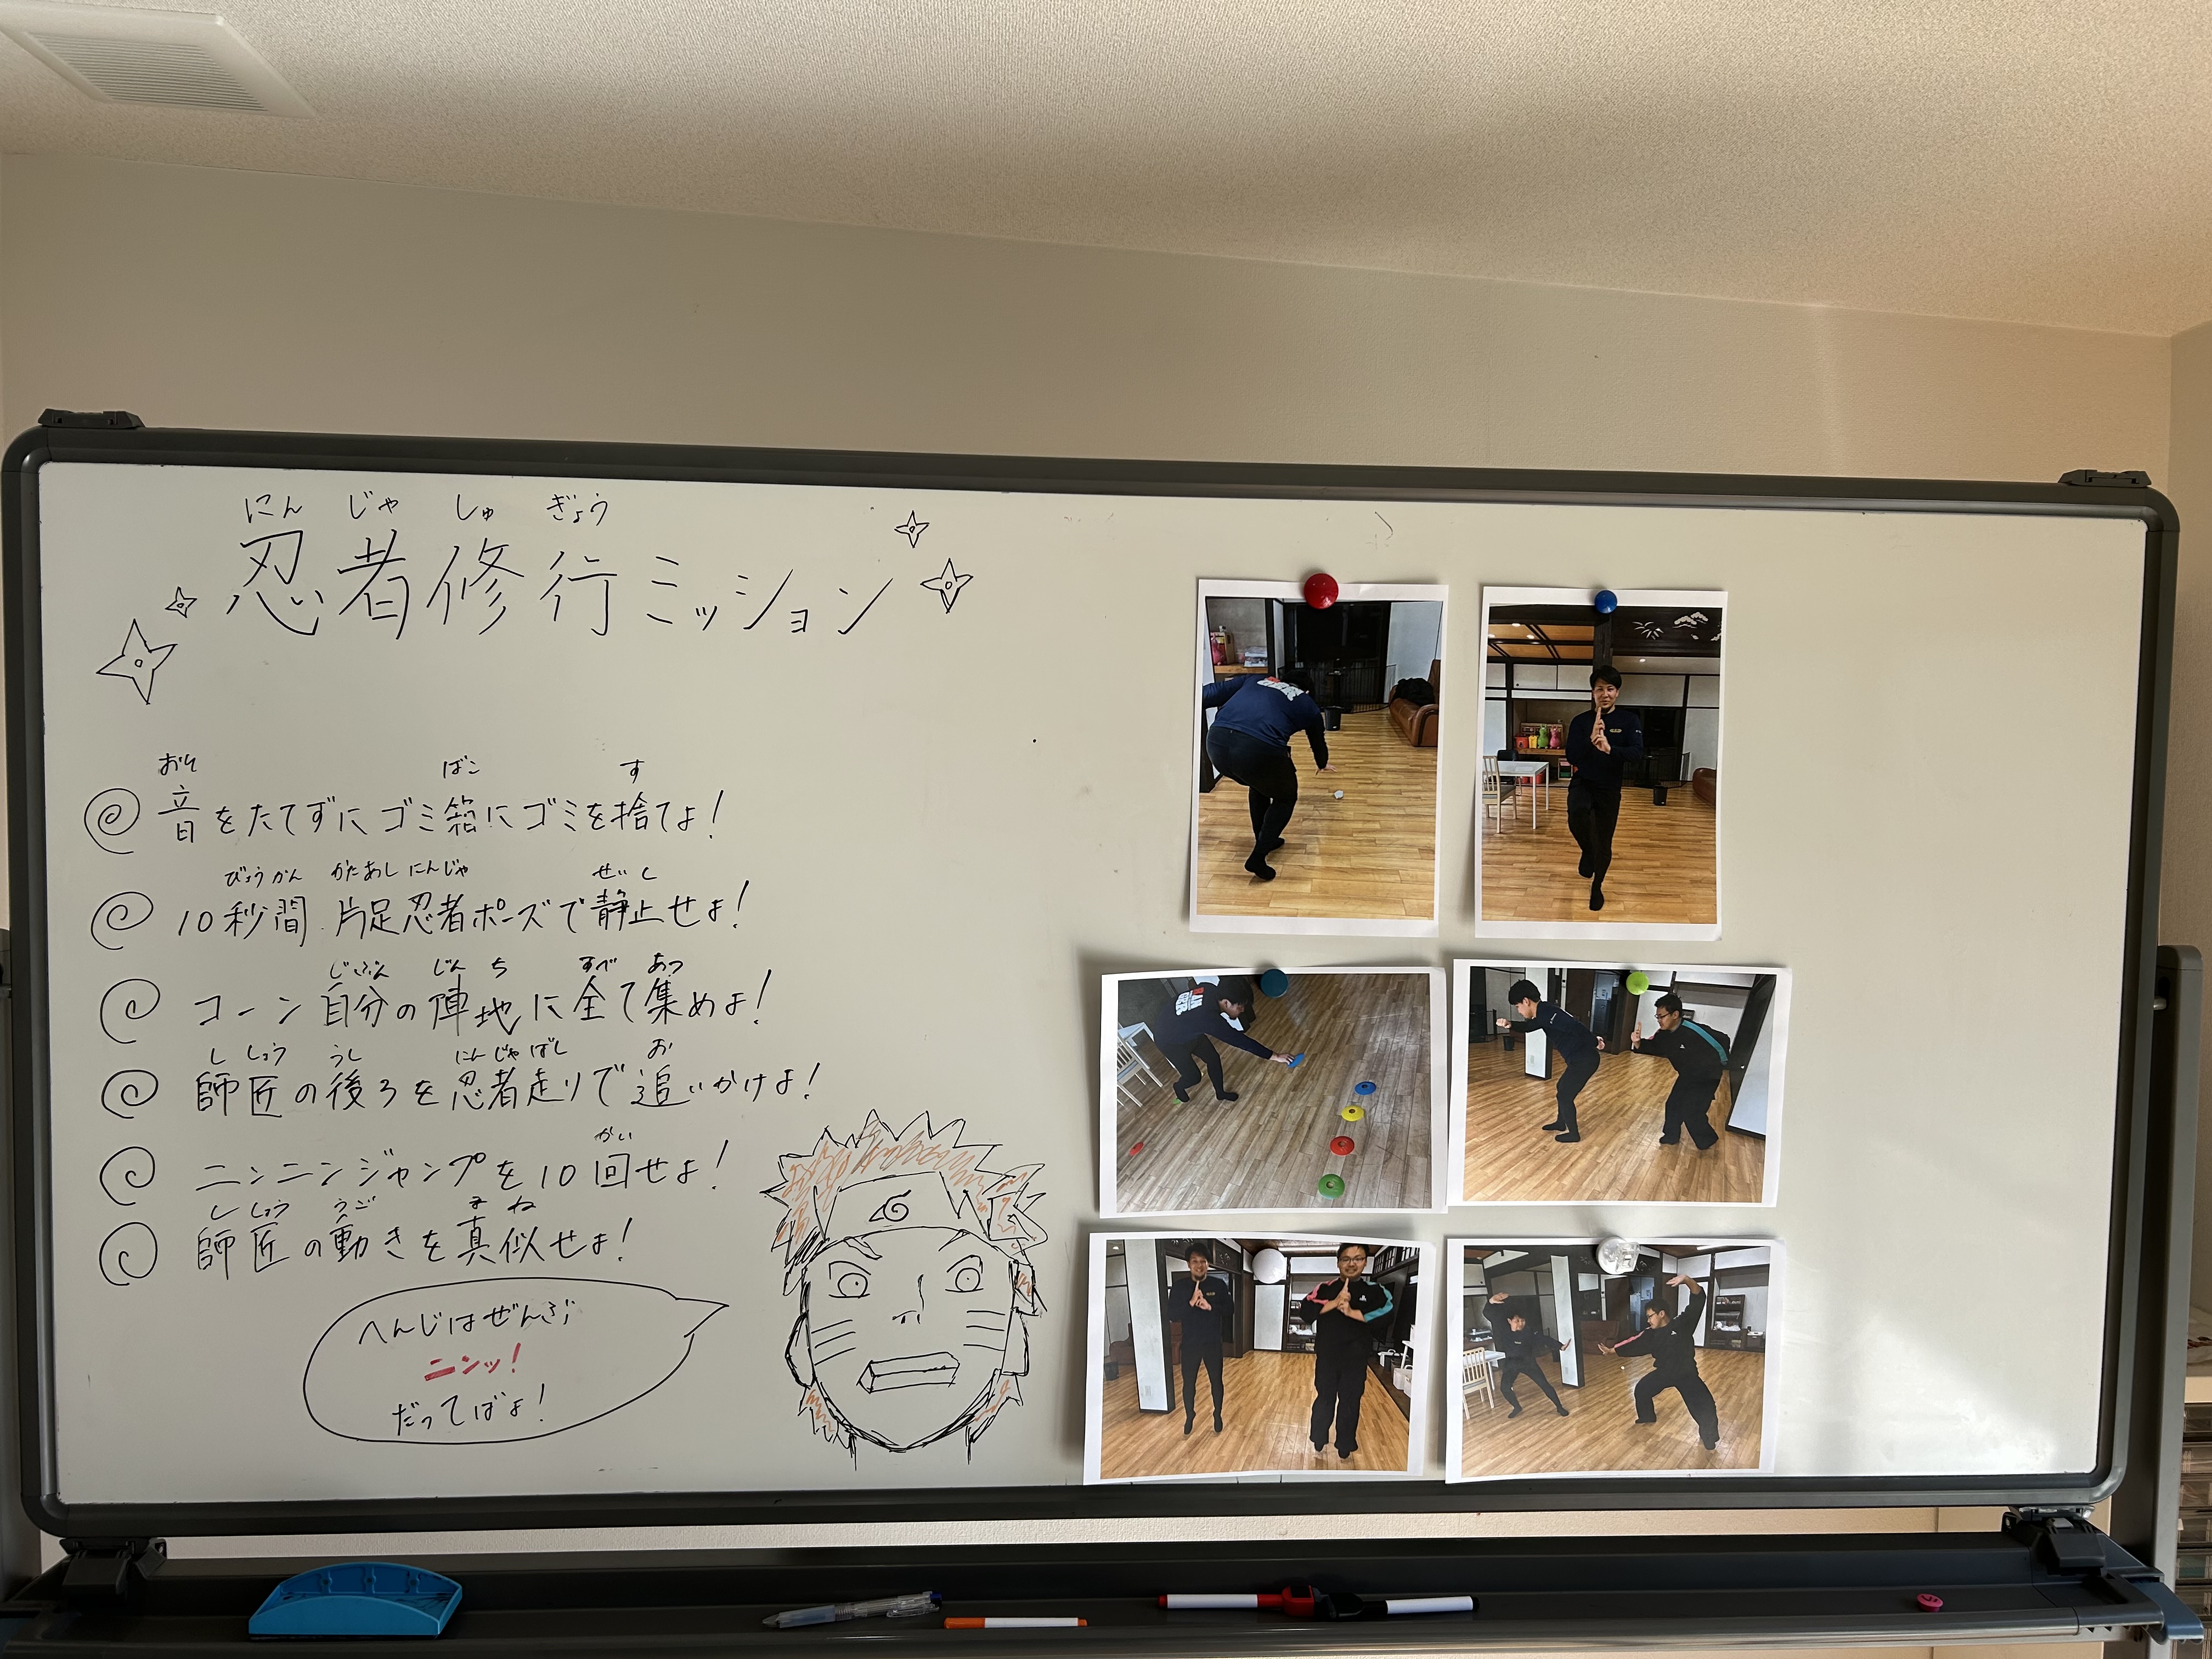 にんじゃしゅぎょう
忍者修行ミッション
おと ばこ す
音をたてずにゴミ箱にゴミを捨てよ!
びょうかん かたあし にんじゃ せいし
10秒間 片足忍者ポーズで静止せよ!
じぶん じんち すべ あつ
コーン自分の陣地に全て集めよ!
ししょう うし にんじゃばし お
師匠の後ろを忍者走りで追いかけよ!
かい
ニンニンジャンプを10回せよ!
ししょう うご まね
師匠の動きを真似せよ!
へんじはぜんぶ
ニンッ!
だってばよ!